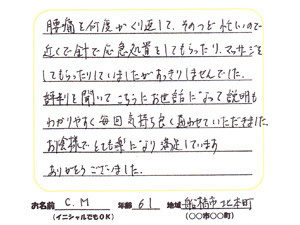 腰痛を何度かくり返して、そのつど忙しいので
近くで針で応急処置をしてもらったり、マッサージを
してもらったりしていましたがすっきりしませんでした。
評判を聞いてこちらにお世話になって説明も
わかりやすく毎回気持ち良く通わせていただきました
お陰様でとても楽になり満足しています
ありがとうございました。
お名前 C.M 年齢 61 地域 船橋市北本町
(イニシャルでもOK) (○○市○○町)